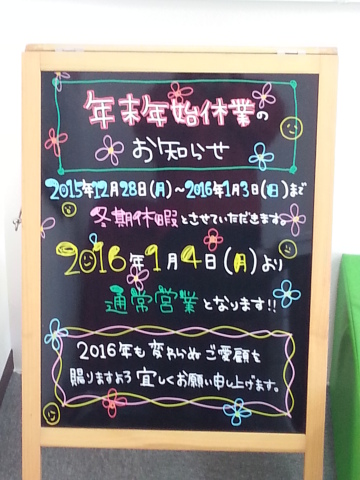 年末年始休業の
お知らせ
2015年12月28日(月)〜2016年1月3日(日)まで
冬期休暇とさせていただきます。
2016年1月4日(月)より
通常営業となります!!
2016年も変わらぬご愛顧を
賜りますよう宜しくお願い申し上げます。